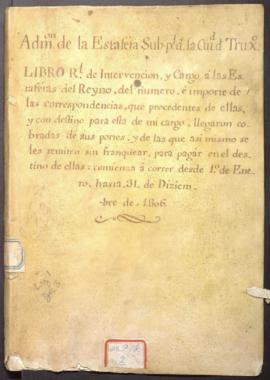 Adm.on de la Estafeta Sub.pl d. la Ciu.d d. Trux.o
LIBRO R.l de Intervencion, y Cargo á las Es
tafetas del Reyno, del número, é importe de
las correspondencias, que procedentes de ellas,
y con destino para esta de mi cargo, llegaron co
bradas de sus portes, y de las que asi mismo se
les remiten sin franquear, para pagar en el des
tino de ellas: comienza á correr desde 1.o de Ene
ro, hasta 31. de Diziem
bre de 1806.
2